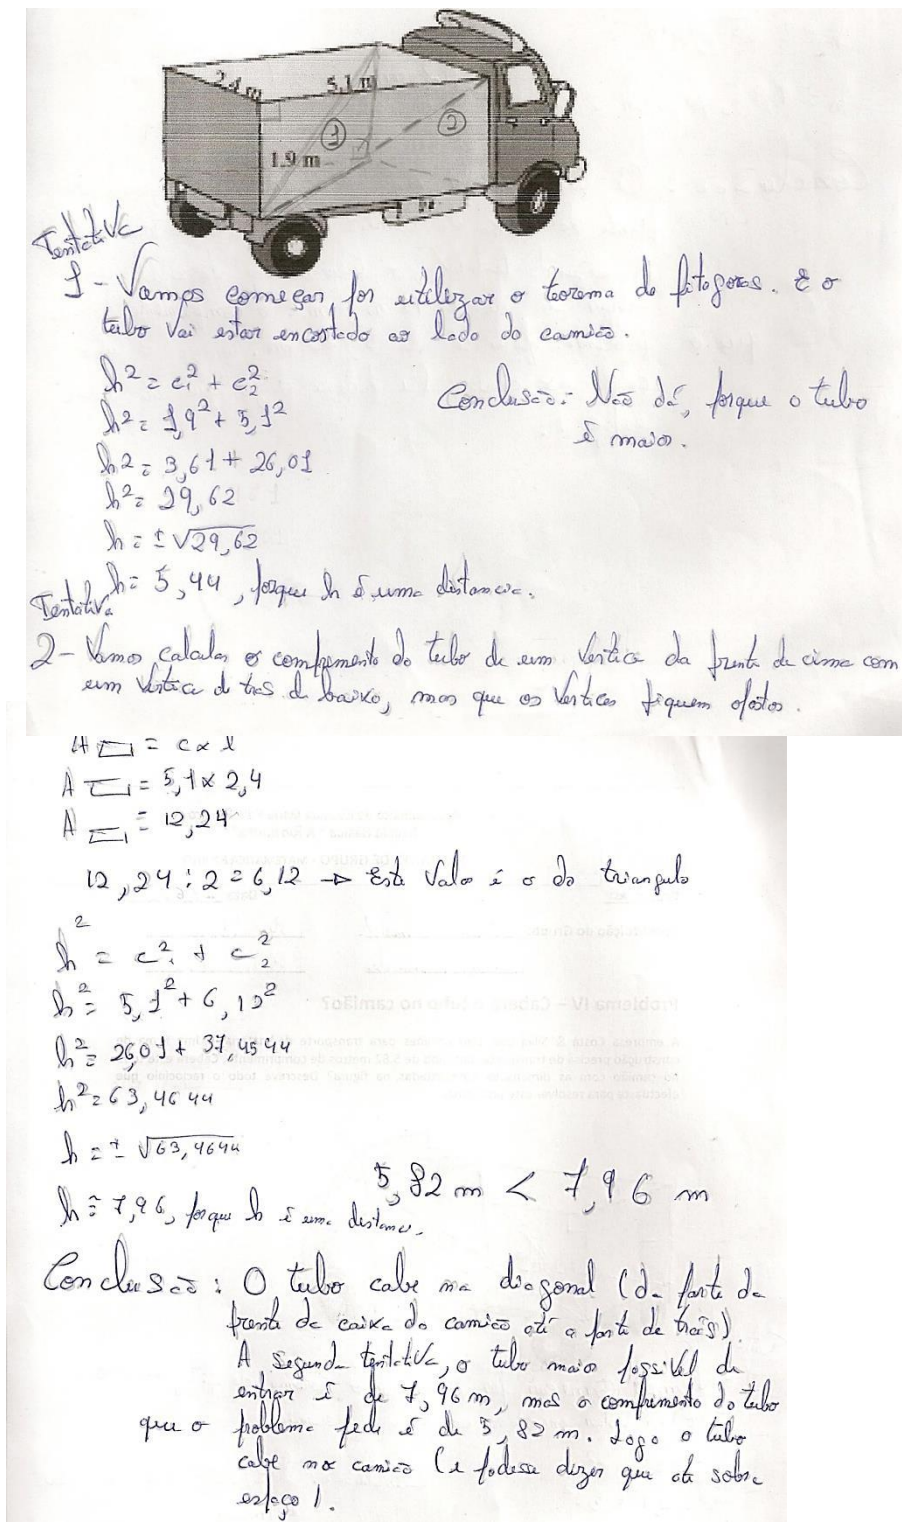 2,4 m
5,1 m
1
2
1,9 m
Tentativa
1 - Vamos começar, por utilizar o teorema de pitagoras. E o
tubo vai estar encostado ao lado do camião.
h² = c₁² + c₂²
h² = 1,9² + 5,1²
h² = 3,61 + 26,01
h² = 29,62
h = ± √29,62
h = 5,44, porque h é uma distancia.
Conclusão: Não dá, porque o tubo
é maior.
Tentativa
2 - Vamos calcular o comprimento do tubo de um vertice da frente de cima com
um vertice de tras de baixo, mas que os vertices fiquem opostos.
A ▭ = c x l
A ▭ = 5,1 x 2,4
A ▭ = 12,24
12,24 : 2 = 6,12 → Este valor é o do triangulo
h² = c₁² + c₂²
h² = 5,1² + 6,12²
h² = 26,01 + 37,4544
h² = 63,4644
h = ± √63,4644
h = 7,96, porque h é uma distanc.
5,82 m < 7,96 m
Conclusão: O tubo cabe na diagonal (da parte da
frente da caixa do camião até a parte de trás).
A segunda tentativa, o tubo maior possivel de
entrar é de 7,96 m, mas o comprimento do tubo
que o problema pede é de 5,82 m. Logo o tubo
cabe no camião (e podesse dizer que até sobra
espaço).
Problema IV – Caberá o tubo no camião?